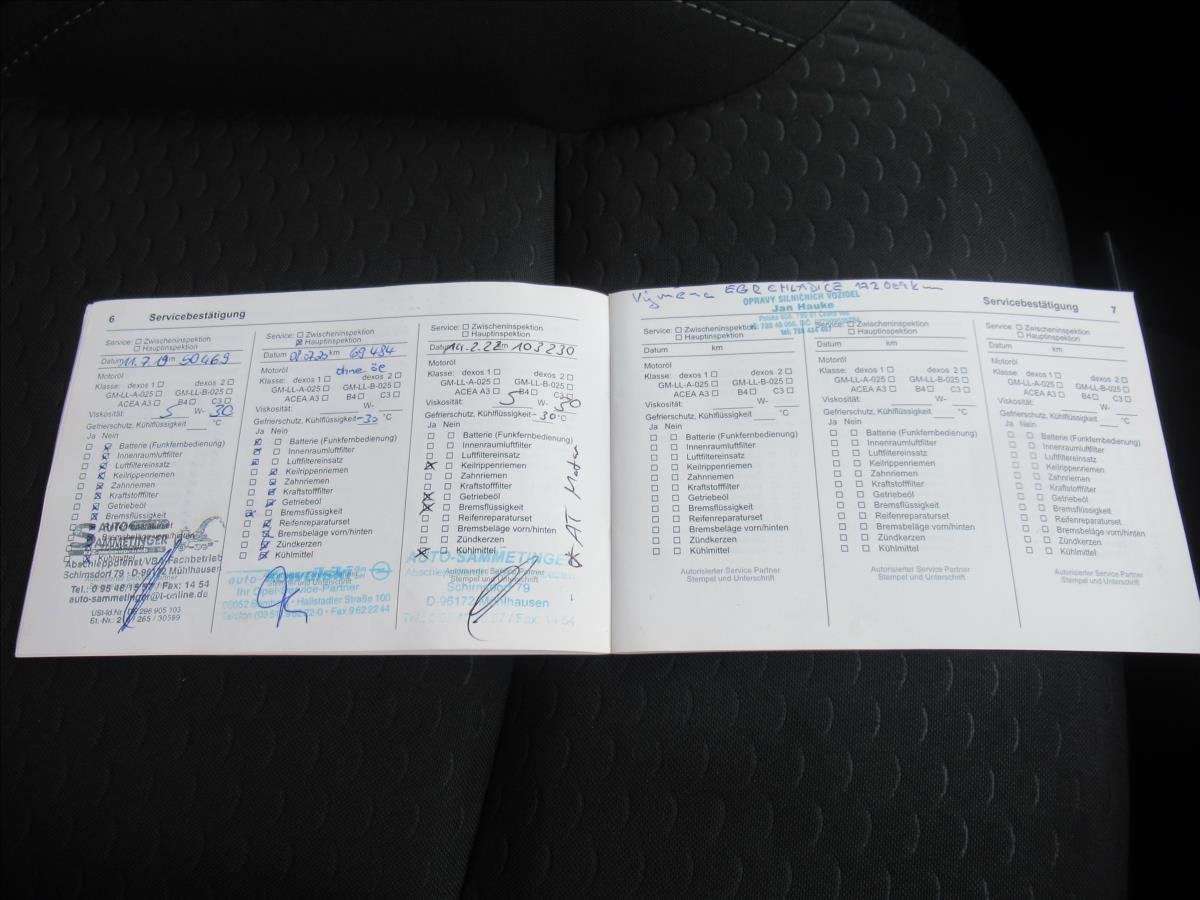 6 Servicebestätigung
Service: Zwischeninspektion
Hauptinspektion
Datum 11.7.19 km 50469
Motoröl
Klasse: dexos 1 dexos 2
GM-LL-A-025 GM-LL-B-025
ACEA A3 B4 C3
Viskosität: 5 W- 30
Gefrierschutz, Kühlflüssigkeit °C
Ja Nein
Batterie (Funkfernbedienung)
Innenraumluftfilter
Luftfiltereinsatz
Keilrippenriemen
Zahnriemen
Kraftstofffilter
Getriebeöl
AUTO
SAMMETINGER
Kühlmittel
Abschleppdienst VBA Fachbetrieb
Schirnsdorf 79 - D-96172 Mühlhausen
Fax: 14 54
auto-sammetinger@t-online.de
Service: Zwischeninspektion
Hauptinspektion
Datum km 69484
Motoröl ohne öl
Klasse: dexos 1 dexos 2
GM-LL-A-025 GM-LL-B-025
ACEA A3 B4 C3
Viskosität: W-
Gefrierschutz, Kühlflüssigkeit -30 °C
Ja Nein
Batterie (Funkfernbedienung)
Innenraumluftfilter
Luftfiltereinsatz
Keilrippenriemen
Zahnriemen
Kraftstofffilter
Getriebeöl
Bremsflüssigkeit
Reifenreparaturset
Bremsbeläge vorn/hinten
Zündkerzen
Kühlmittel
Kowalski
Ihr Opel-Service-Partner
Hallstadter Straße 100
Fax 9 62 22 44
Service: Zwischeninspektion
Hauptinspektion
Datum 14.2.22 km 103230
Motoröl
Klasse: dexos 1 dexos 2
GM-LL-A-025 GM-LL-B-025
ACEA A3 B4 C3
Viskosität: 5 W- 30
Gefrierschutz, Kühlflüssigkeit -30 °C
Ja Nein
Batterie (Funkfernbedienung)
Innenraumluftfilter
Luftfiltereinsatz
Keilrippenriemen
Zahnriemen
Kraftstofffilter
Getriebeöl
Bremsflüssigkeit
Reifenreparaturset
Bremsbeläge vorn/hinten
Zündkerzen
Kühlmittel
* AT Motor
AUTO-SAMMETINGER
Autorisierter Service Partner
Stempel und Unterschrift
Schirnsdorf 79
D-96172 Mühlhausen
Fax: 14 54
Výměna EGR CHLADICE 172064 km
OPRAVY SILNIČNÍCH VOZIDEL
Jan Hauke
Servicebestätigung 7
Service: Zwischeninspektion
Hauptinspektion
Datum km
Motoröl
Klasse: dexos 1 dexos 2
GM-LL-A-025 GM-LL-B-025
ACEA A3 B4 C3
Viskosität: W-
Gefrierschutz, Kühlflüssigkeit °C
Ja Nein
Batterie (Funkfernbedienung)
Innenraumluftfilter
Luftfiltereinsatz
Keilrippenriemen
Zahnriemen
Kraftstofffilter
Getriebeöl
Bremsflüssigkeit
Reifenreparaturset
Bremsbeläge vorn/hinten
Zündkerzen
Kühlmittel
Autorisierter Service Partner
Stempel und Unterschrift
Service: Zwischeninspektion
Hauptinspektion
Datum km
Motoröl
Klasse: dexos 1 dexos 2
GM-LL-A-025 GM-LL-B-025
ACEA A3 B4 C3
Viskosität: W-
Gefrierschutz, Kühlflüssigkeit °C
Ja Nein
Batterie (Funkfernbedienung)
Innenraumluftfilter
Luftfiltereinsatz
Keilrippenriemen
Zahnriemen
Kraftstofffilter
Getriebeöl
Bremsflüssigkeit
Reifenreparaturset
Bremsbeläge vorn/hinten
Zündkerzen
Kühlmittel
Autorisierter Service Partner
Stempel und Unterschrift
Service: Zwischeninspektion
Hauptinspektion
Datum km
Motoröl
Klasse: dexos 1 dexos 2
GM-LL-A-025 GM-LL-B-025
ACEA A3 B4 C3
Viskosität: W-
Gefrierschutz, Kühlflüssigkeit °C
Ja Nein
Batterie (Funkfernbedienung)
Innenraumluftfilter
Luftfiltereinsatz
Keilrippenriemen
Zahnriemen
Kraftstofffilter
Getriebeöl
Bremsflüssigkeit
Reifenreparaturset
Bremsbeläge vorn/hinten
Zündkerzen
Kühlmittel
Autorisierter Service Partner
Stempel und Unterschrift